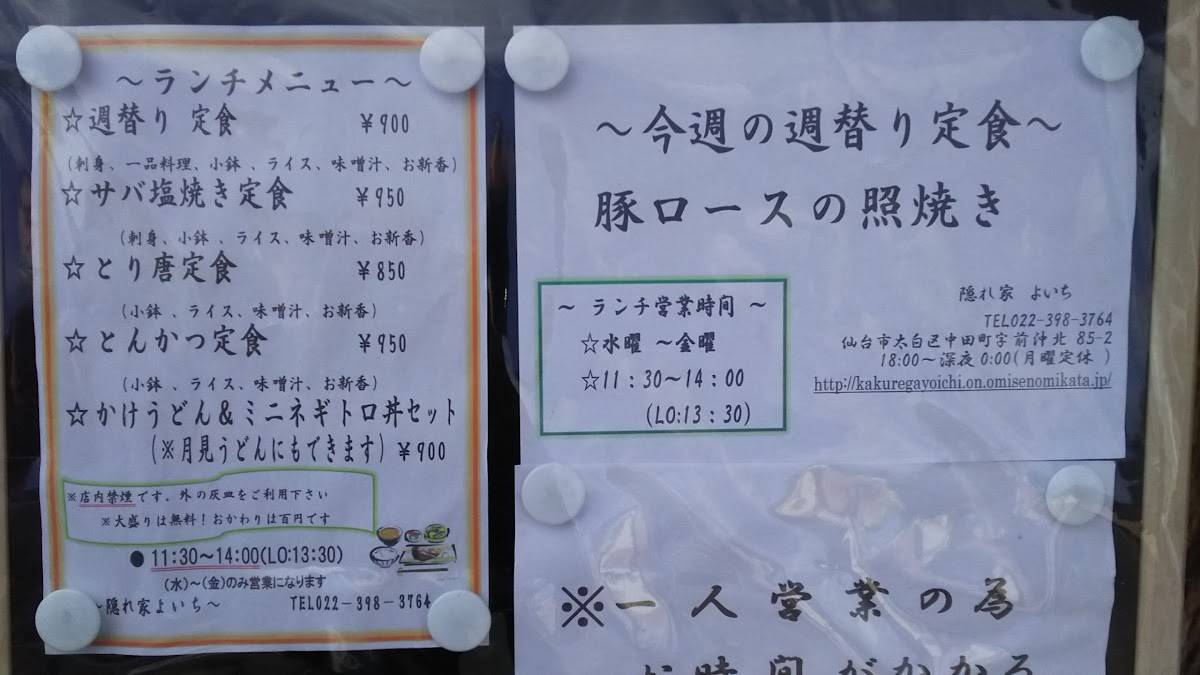 ～ランチメニュー～
☆週替り 定食 ￥900
(刺身、一品料理、小鉢 、ライス、味噌汁、お新香)
☆サバ塩焼き定食 ￥950
(刺身、小鉢 、ライス、味噌汁、お新香)
☆とり唐定食 ￥850
(小鉢 、ライス、味噌汁、お新香)
☆とんかつ定食 ￥950
(小鉢 、ライス、味噌汁、お新香)
☆かけうどん＆ミニネギトロ丼セット
(※月見うどんにもできます) ￥900
※店内禁煙です。外の灰皿をご利用下さい
※大盛りは無料！おかわりは百円です
●11:30～14:00(LO:13:30)
(水)～(金)のみ営業になります
～隠れ家よいち～ TEL022－398－3764
～今週の週替り定食～
豚ロースの照焼き
～ ランチ営業時間 ～
☆水曜 ～金曜
☆11：30～14：00
(LO:13：30)
隠れ家 よいち
TEL022-398-3764
仙台市太白区中田町字前沖北 85-2
18:00～深夜0:00(月曜定休 )
http://kakuregayoichi.on.omisenomikata.jp/
※一人営業の為
お時間がかかる